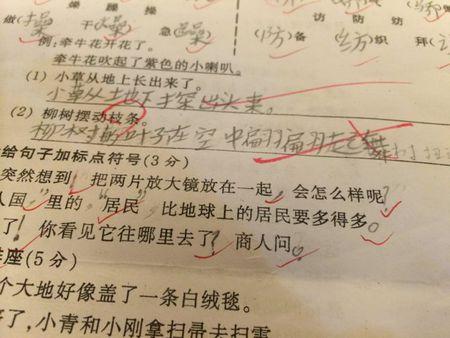 燥 蹋 操
做(操) 干(燥) 急(躁)
访 防 纺
(防)备 (纺)织 拜(
例:牵牛花开花了。
牵牛花吹起了紫色的小喇叭。
(1) 小草从地上长出来了。
小草从土地下探出头来。
(2) 柳树摆动枝条。
柳树的叶子在空中翩翩起舞
给句子加标点符号(3 分)
突然想到,把两片放大镜放在一起,会怎么样呢?
人国”里的“居民”比地球上的居民要多得多。
了!你看见它往哪里去了?商人问。
座(5 分)
个大地好像盖了一条白绒毯。
了,小青和小刚拿扫帚去扫雪